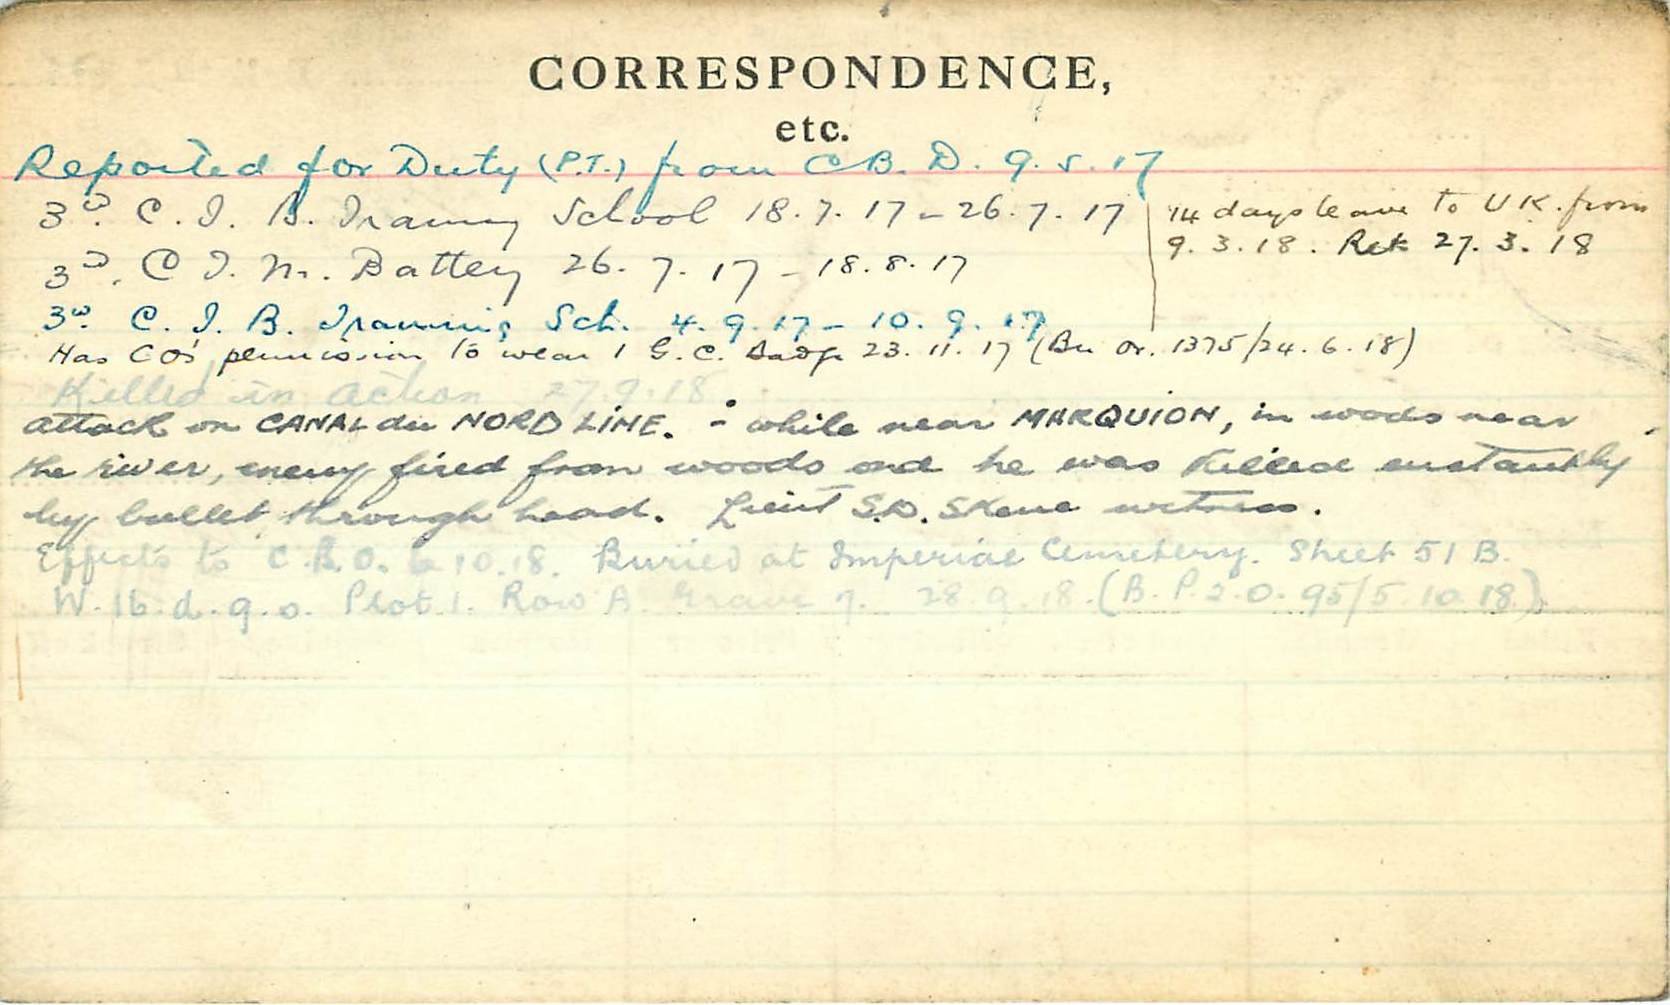 CORRESPONDENCE,
etc.
Reported for Duty (P.T.) from C.B.D. 9.5.17
3rd. C. I. B. Training School 18.7.17 - 26.7.17
14 days leave to U.K. from
9.3.18. Ret 27.3.18
3rd. C I. M. Battery 26.7.17 - 18.8.17
3rd. C. I. B. Training Sch. 4.9.17 - 10.9.17
Has CO's permission to wear 1 G.C. Badge 23.11.17 (Bn Or. 1375/24.6.18)
Killed in action 27.9.18
attack on CANAL du NORD LINE. :- while near MARQUION, in woods near
the river, enemy fired from woods and he was killed instantly
by bullet through head. Lieut S.D. Skene witness.
Effects to C.B.O. 6.10.18. Buried at Imperial Cemetery. Sheet 51 B.
W. 16. d. 9. 0. Plot 1. Row A. Grave 7. 28.9.18. (B.P.2.0.95/5.10.18.)